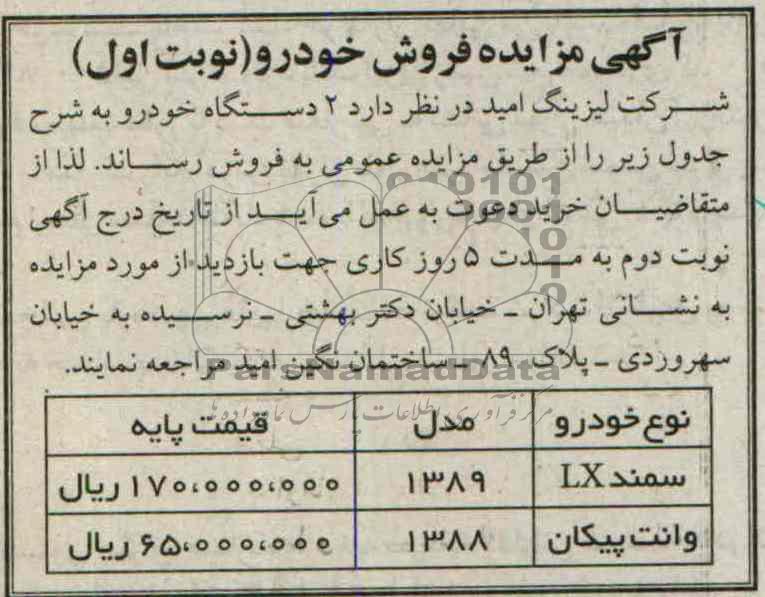 آگهی مزایده فروش خودرو(نوبت اول)
شرکت لیزینگ امید در نظر دارد ۲ دستگاه خودرو به شرح
جدول زیر را از طریق مزایده عمومی به فروش رساند. لذا از
متقاضیان خرید دعوت به عمل می‌آید از تاریخ درج آگهی
نوبت دوم به مدت ۵ روز کاری جهت بازدید از مورد مزایده
به نشانی تهران ـ خیابان دکتر بهشتی ـ نرسیده به خیابان
سهروردی ـ پلاک ۸۹ ـ ساختمان نگین امید مراجعه نمایند.
ParsNamadData
مرکز فرآوری اطلاعات پارس نماد داده ها
نوع خودرو مدل قیمت پایه
سمند LX ۱۳۸۹ ۱۷۰،۰۰۰،۰۰۰ ریال
وانت پیکان ۱۳۸۸ ۶۵،۰۰۰،۰۰۰ ریال